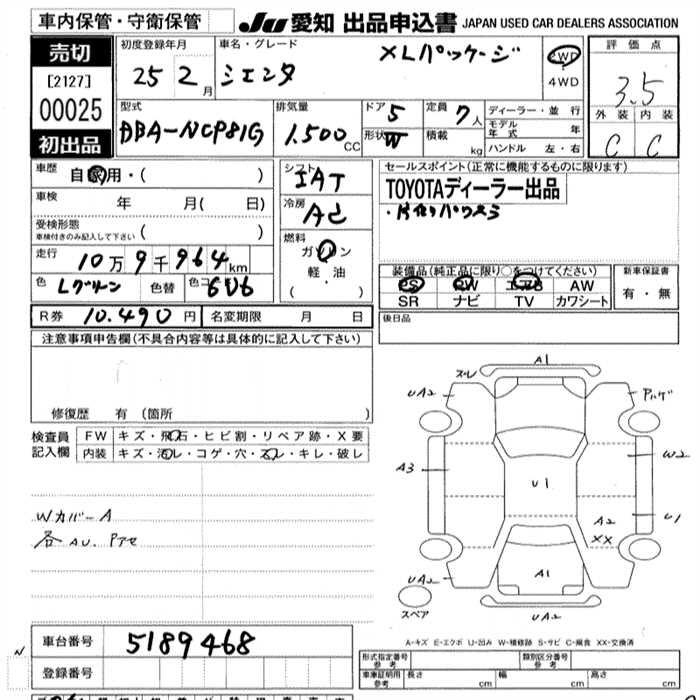 車内保管・守衛保管
JU 愛知 出品申込書 JAPAN USED CAR DEALERS ASSOCIATION
売切
[2127]
00025
初出品
初度登録年月
25 2月
車名・グレード
シエンタ XLパッケージ
2WD
4WD
評価点
3.5
外装 内装
C C
型式
DBA-NCP81G
排気量
1.500 CC
ドア 5
形状 W
定員 7人
積載 kg
ディーラー・並行
モデル年式 年
ハンドル 左・右
車歴 自家用・( )
車検 年 月( 日)
受検形態
車検付きのみ記入して下さい ( )
走行 10万9千964km
色 Lグリーン 色替 色コ 6U6
シフト
IAT
冷房
AC
燃料
ガソリン
軽・油
( ・ )
セールスポイント(正常に機能するものに限ります)
TOYOTAディーラー出品
・片側パワスラ
装備品(純正品に限り○をつけてください)
PS PW エアB AW
SR ナビ TV カワシート
新車保証書
有・無
R券 10.490円 名変期限 月 日
後日品
注意事項申告欄(不具合内容等は具体的に記入して下さい)
修復歴 有 (箇所 )
検査員
記入欄
FW キズ・飛石・ヒビ割・リペア跡・X要
内装 キズ・汚レ・コゲ・穴・スレ・キレ・破レ
Wカバー A
各AU. Pアセ
A1
スレ
UA2
アルゲ
A3
W2
U1
U1
A2
XX
A1
UA2
UA2
スペア
A-キズ E-エクボ U-凹み W-補修跡 S-サビ C-腐食 XX-交換済
N
車台番号 5189468
登録番号
形式指定番号
参考
類別区分番号
参考
車庫証明用
参考
長さ cm 幅 cm 高さ cm